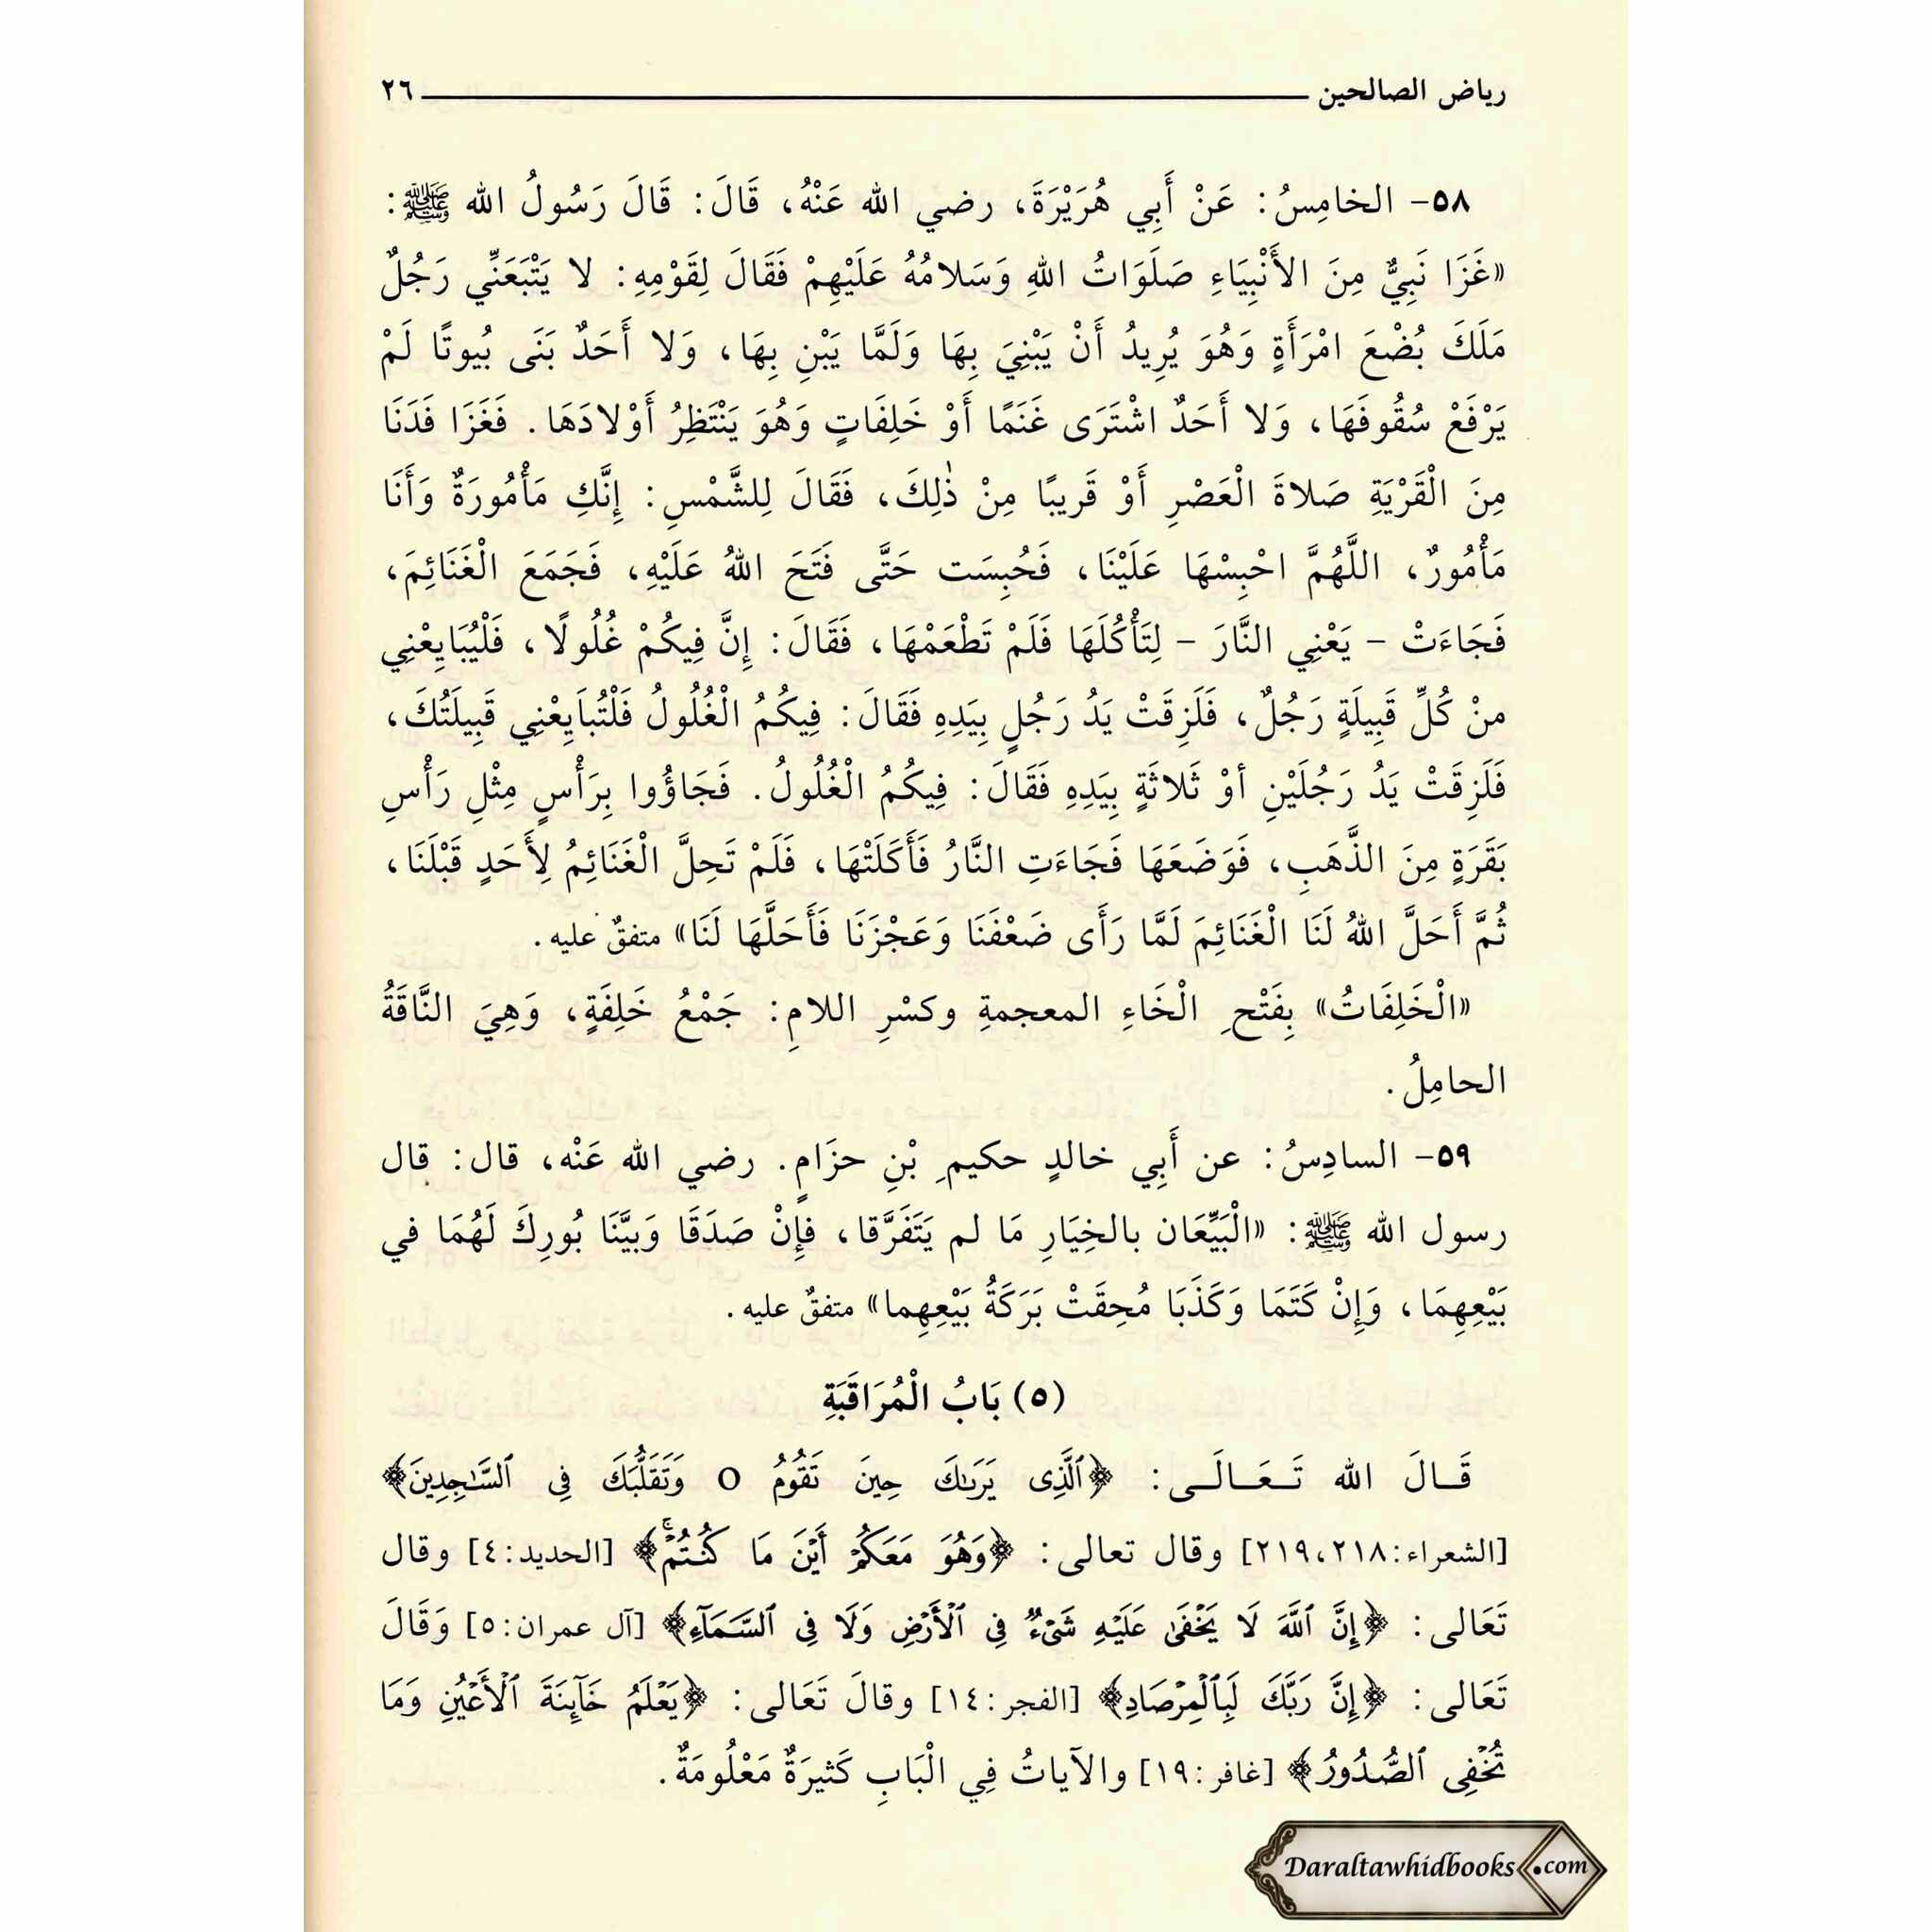 رياض الصالحين ٢٦
٥٨- الخامِسُ: عَنْ أَبِي هُرَيْرَةَ، رضي الله عَنْهُ، قَالَ: قَالَ رَسُولُ الله ﷺ:
«غَزَا نَبِيٌّ مِنَ الأَنْبِيَاءِ صَلَوَاتُ اللهِ وَسَلامُهُ عَلَيْهِمْ فَقَالَ لِقَوْمِهِ: لا يَتْبَعَنِّي رَجُلٌ
مَلَكَ بُضْعَ امْرَأَةٍ وَهُوَ يُرِيدُ أَنْ يَبْنِيَ بِهَا وَلَمَّا يَبْنِ بِهَا، وَلا أَحَدٌ بَنَى بُيوتًا لَمْ
يَرْفَعْ سُقُوفَهَا، وَلا أَحَدٌ اشْتَرَى غَنَمًا أَوْ خَلِفَاتٍ وَهُوَ يَنْتَظِرُ أَوْلادَهَا. فَغَزَا فَدَنَا
مِنَ الْقَرْيَةِ صَلاةَ الْعَصْرِ أَوْ قَرِيبًا مِنْ ذٰلِكَ، فَقَالَ لِلشَّمْسِ: إِنَّكِ مَأْمُورَةٌ وَأَنَا
مَأْمُورٌ، اللَّهُمَّ احْبِسْهَا عَلَيْنَا، فَحُبِسَت حَتَّى فَتَحَ اللهُ عَلَيْهِ، فَجَمَعَ الْغَنَائِمَ،
فَجَاءَتْ – يَعْنِي النَّارَ – لِتَأْكُلَهَا فَلَمْ تَطْعَمْهَا، فَقَالَ: إِنَّ فِيكُمْ غُلُولًا، فَلْيُبَايِعْنِي
منْ كُلِّ قَبِيلَةٍ رَجُلٌ، فَلَزِقَتْ يَدُ رَجُلٍ بِيَدِهِ فَقَالَ: فِيكُمُ الْغُلُولُ فَلْتُبايِعْنِي قَبِيلَتُكَ،
فَلَزِقَتْ يَدُ رَجُلَيْنِ أوْ ثَلاثَةٍ بِيَدِهِ فَقَالَ: فِيكُمُ الْغُلُولُ. فَجَاؤُوا بِرَأْسٍ مِثْلِ رَأْسِ
بَقَرَةٍ مِنَ الذَّهَبِ، فَوَضَعَهَا فَجَاءَتِ النَّارُ فَأَكَلَتْهَا، فَلَمْ تَحِلَّ الْغَنَائِمُ لِأَحَدٍ قَبْلَنَا،
ثُمَّ أَحَلَّ اللهُ لَنَا الْغَنَائِمَ لَمَّا رَأَى ضَعْفَنَا وَعَجْزَنَا فَأَحَلَّهَا لَنَا» متفقٌ عليه.
«الْخَلِفَاتُ» بِفَتْحِ الْخَاءِ المعجمةِ وكسْرِ اللامِ: جَمْعُ خَلِفَةٍ، وَهِيَ النَّاقَةُ
الحامِلُ.
٥٩- السادِسُ: عن أَبِي خالدٍ حكيمِ بْنِ حزَامٍ. رضي الله عَنْه، قال: قال
رسول الله ﷺ: «الْبَيِّعَان بالخِيَارِ مَا لم يَتَفَرَّقا، فَإِنْ صَدَقَا وَبَيَّنَا بُورِكَ لَهُمَا في
بَيْعِهِمَا، وَإِنْ كَتَمَا وَكَذَبَا مُحِقَتْ بَرَكَةُ بَيْعِهِما» متفقٌ عليه.
(٥) بَابُ الْمُرَاقَبَةِ
قَـالَ الله تَـعَـالَـى: ﴿ٱلَّذِى يَرَىٰكَ حِينَ تَقُومُ O وَتَقَلُّبَكَ فِى ٱلسَّـٰجِدِينَ﴾
[الشعراء:٢١٨، ٢١٩] وقال تعالى: ﴿وَهُوَ مَعَكُمْ أَيْنَ مَا كُنتُمْۚ﴾ [الحديد:٤] وقال
تَعَالى: ﴿إِنَّ ٱللَّهَ لَا يَخْفَىٰ عَلَيْهِ شَىْءٌ فِى ٱلْأَرْضِ وَلَا فِى ٱلسَّمَآءِ﴾ [آل عمران:٥] وَقَالَ
تَعَالى: ﴿إِنَّ رَبَّكَ لَبِٱلْمِرْصَادِ﴾ [الفجر:١٤] وقالَ تَعَالى: ﴿يَعْلَمُ خَآئِنَةَ ٱلْأَعْيُنِ وَمَا
تُخْفِى ٱلصُّدُورُ﴾ [غافر:١٩] والآياتُ فِي الْبَابِ كَثيرَةٌ مَعْلُومَةٌ.
Daraltawhidbooks.com